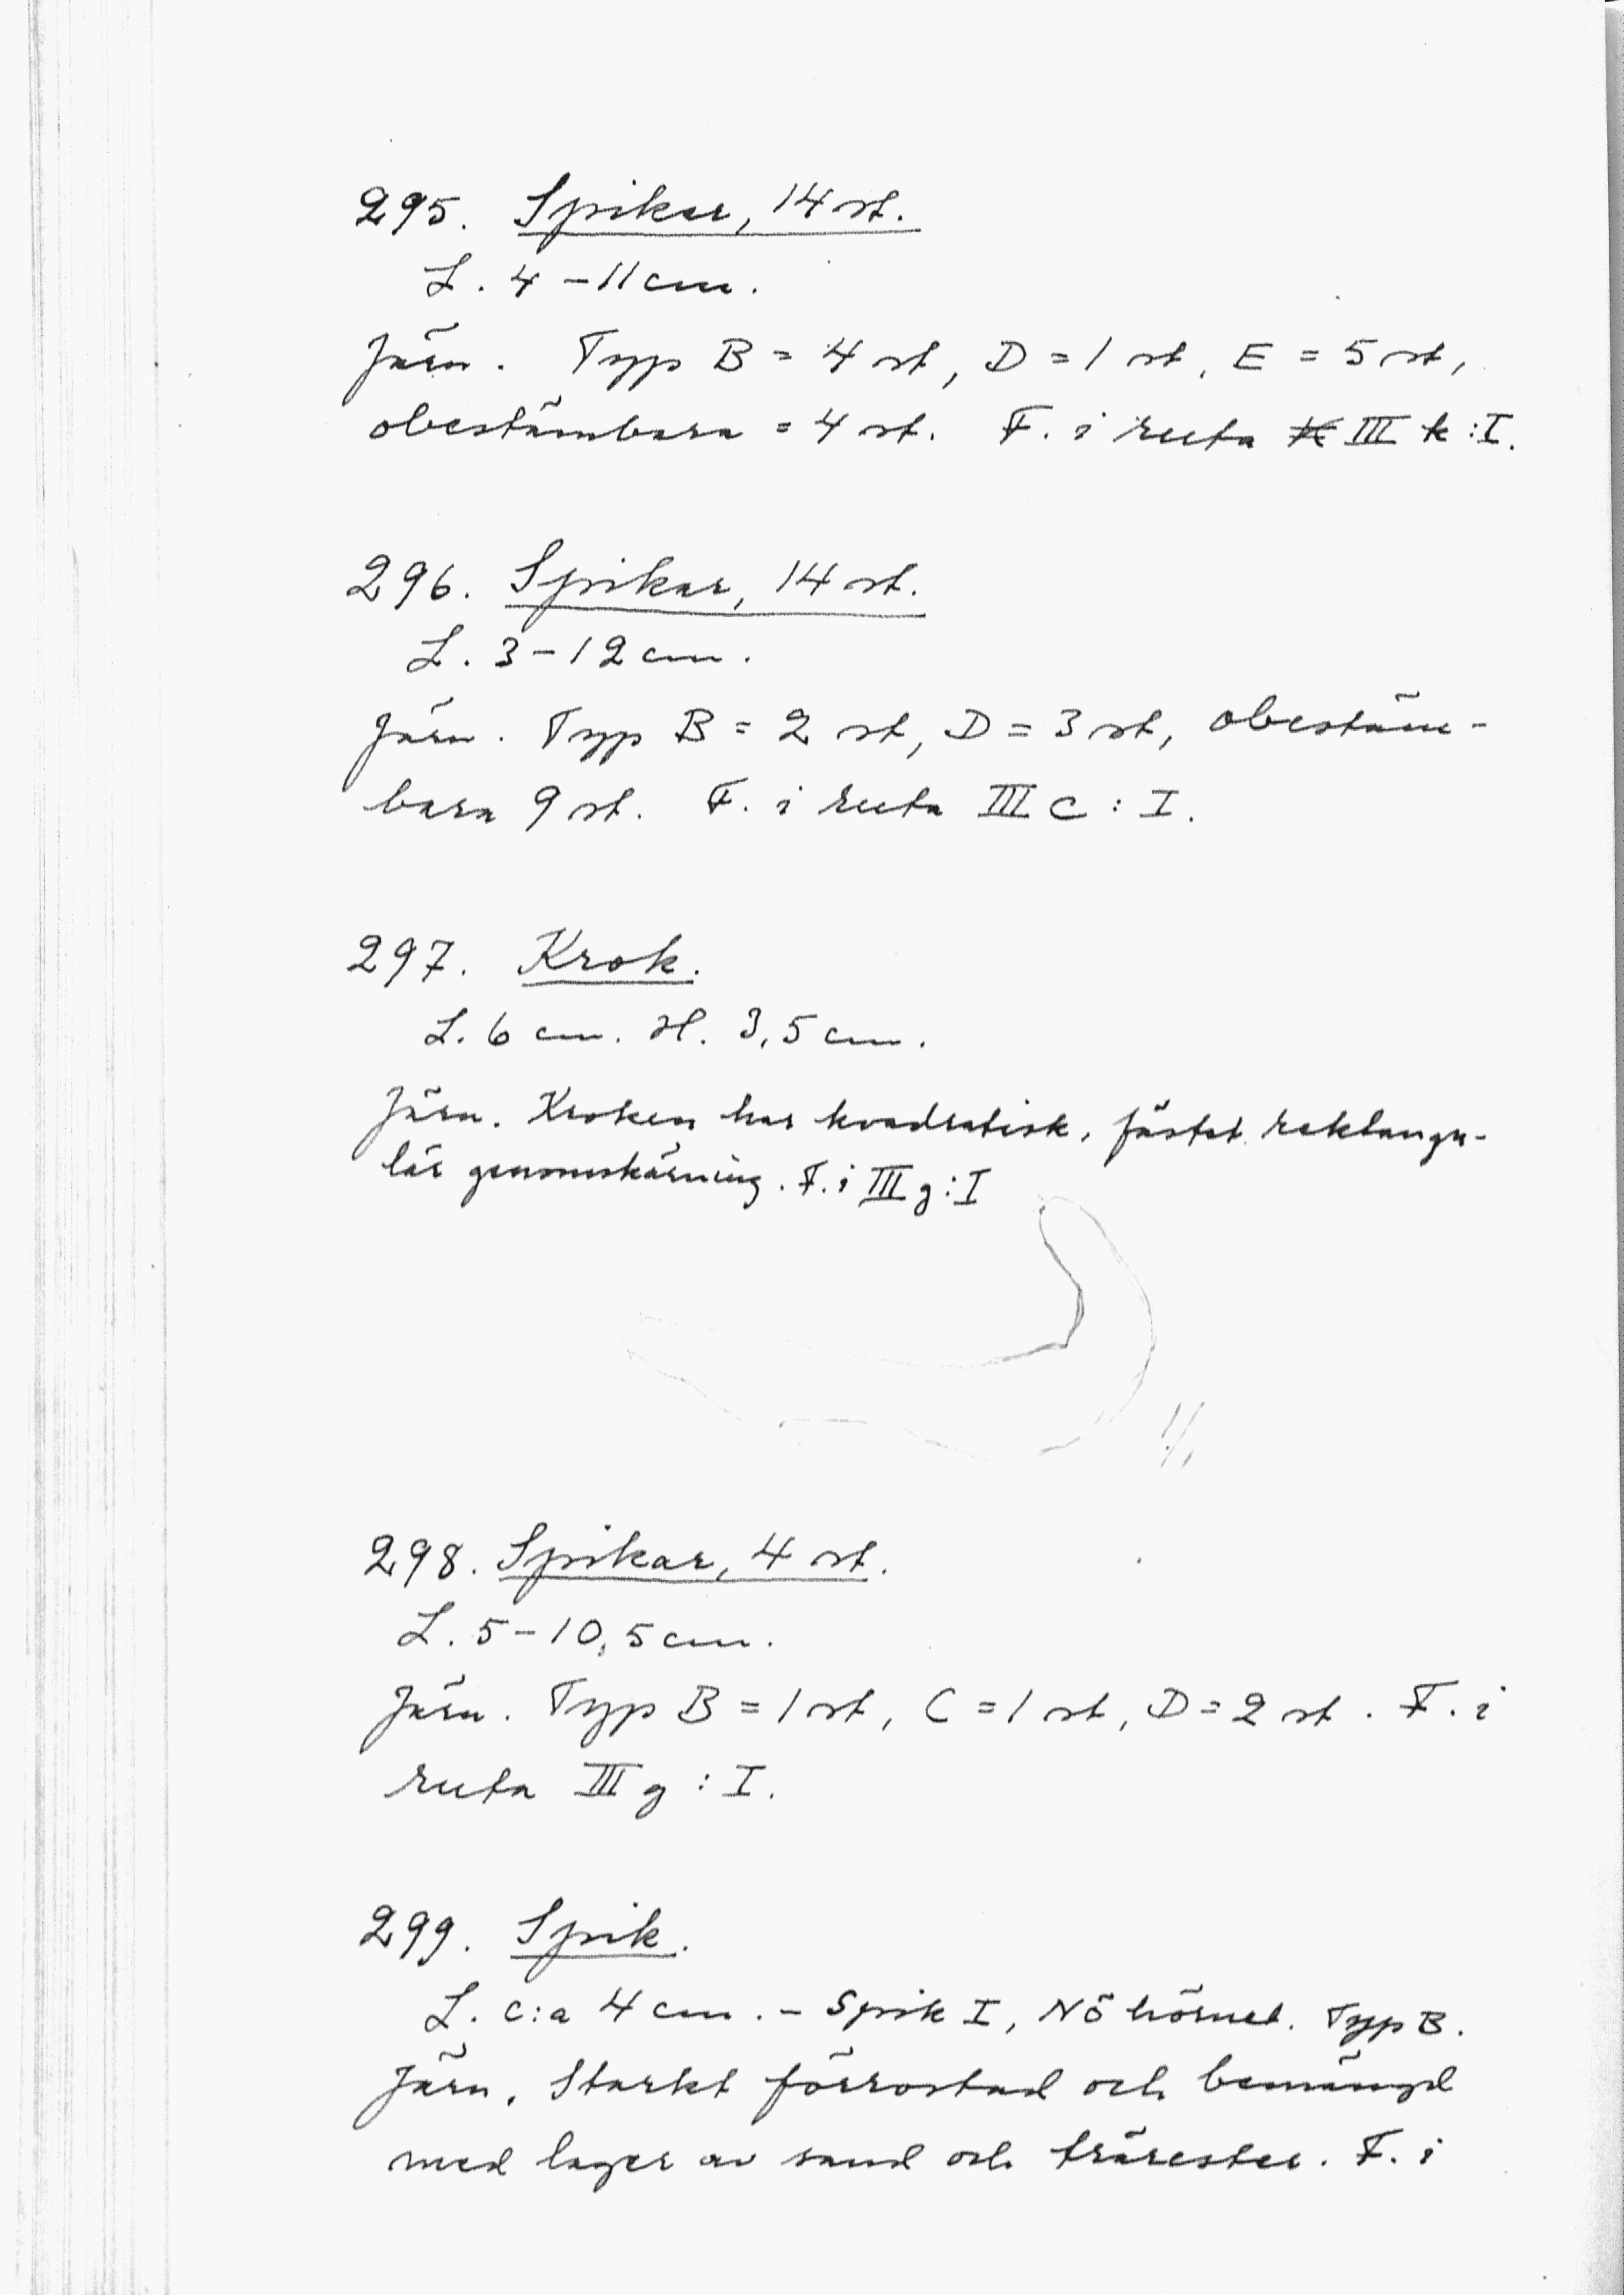 295. Spikar, 14 st.
L. 4-11 cm.
Järn. Typ B = 4 st, D = 1 st, E = 5 st,
obestämbara = 4 st. F. i ruta III k : I.
296. Spikar, 14 st.
L. 3-12 cm.
Järn. Typ B = 2 st, D = 3 st, obestäm-
bara 9 st. F. i ruta III c : I.
297. Krok.
L. 6 cm. H. 3,5 cm.
Järn. Kroken har kvadratisk, fästet rektangu-
lär genomskärning. F. i III g : I
1/1
298. Spikar, 4 st.
L. 5-10,5 cm.
Järn. Typ B = 1 st, C = 1 st, D = 2 st. F. i
ruta III g : I.
299. Spik.
L. c:a 4 cm. - Spik I, NÖ hörnet. Typ B.
Järn. Starkt förrostad och bemängd
med lager av sand och trärester. F. i